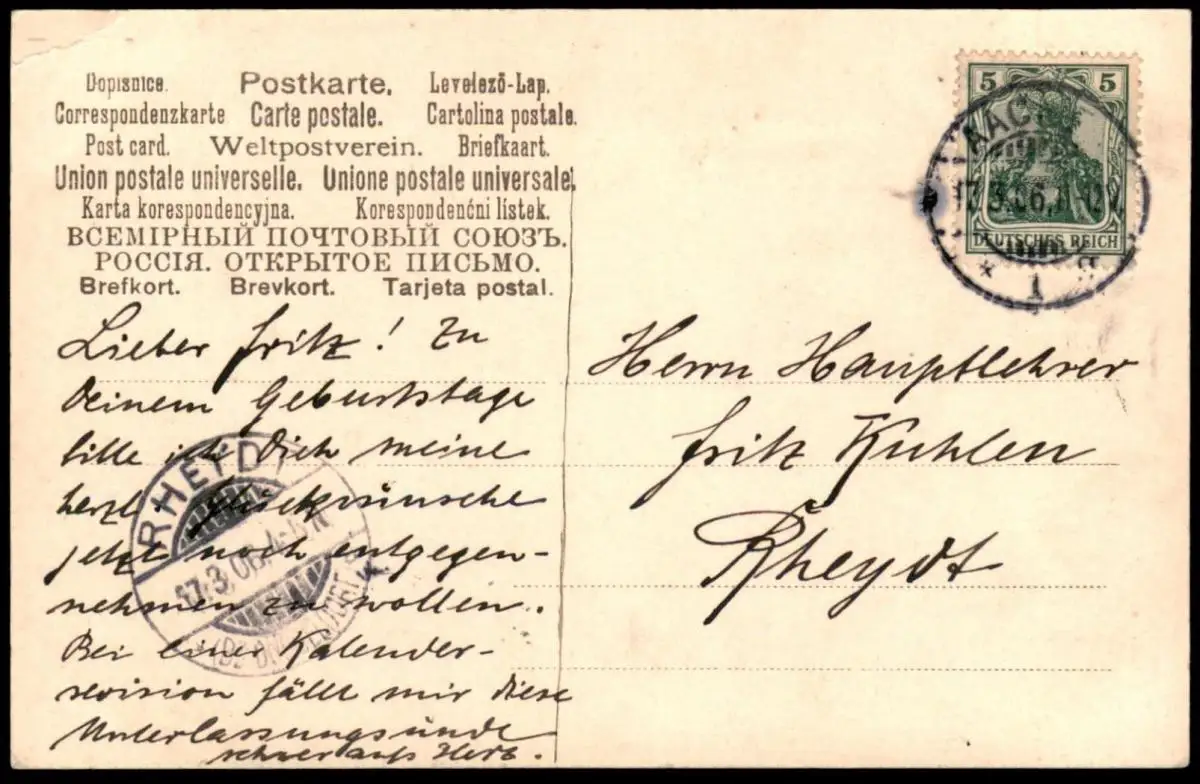 Dopisnice. Postkarte. Levelező-Lap.
Correspondenzkarte Carte postale. Cartolina postale.
Post card. Weltpostverein. Briefkaart.
Union postale universelle. Unione postale universale.
Karta korespondencyjna. Korespondenční lístek.
ВСЕМІРНЫЙ ПОЧТОВЫЙ СОЮЗЪ.
РОССІЯ. ОТКРЫТОЕ ПИСЬМО.
Brefkort. Brevkort. Tarjeta postal.
Lieber Fritz! Zu
Deinem Geburtstage
bitte ich Dich meine
herzl. Glückwünsche
jetzt noch entgegen-
nehmen zu wollen.
Bei einer Kalender-
revision fällt mir diese
Unterlassungssünde
schwer aufs Herz.
RHEYDT
17.3.06
5 5
DEUTSCHES REICH
AAC
17.3.06
* 1
Herrn Hauptlehrer
Fritz Kuhlen
Rheydt